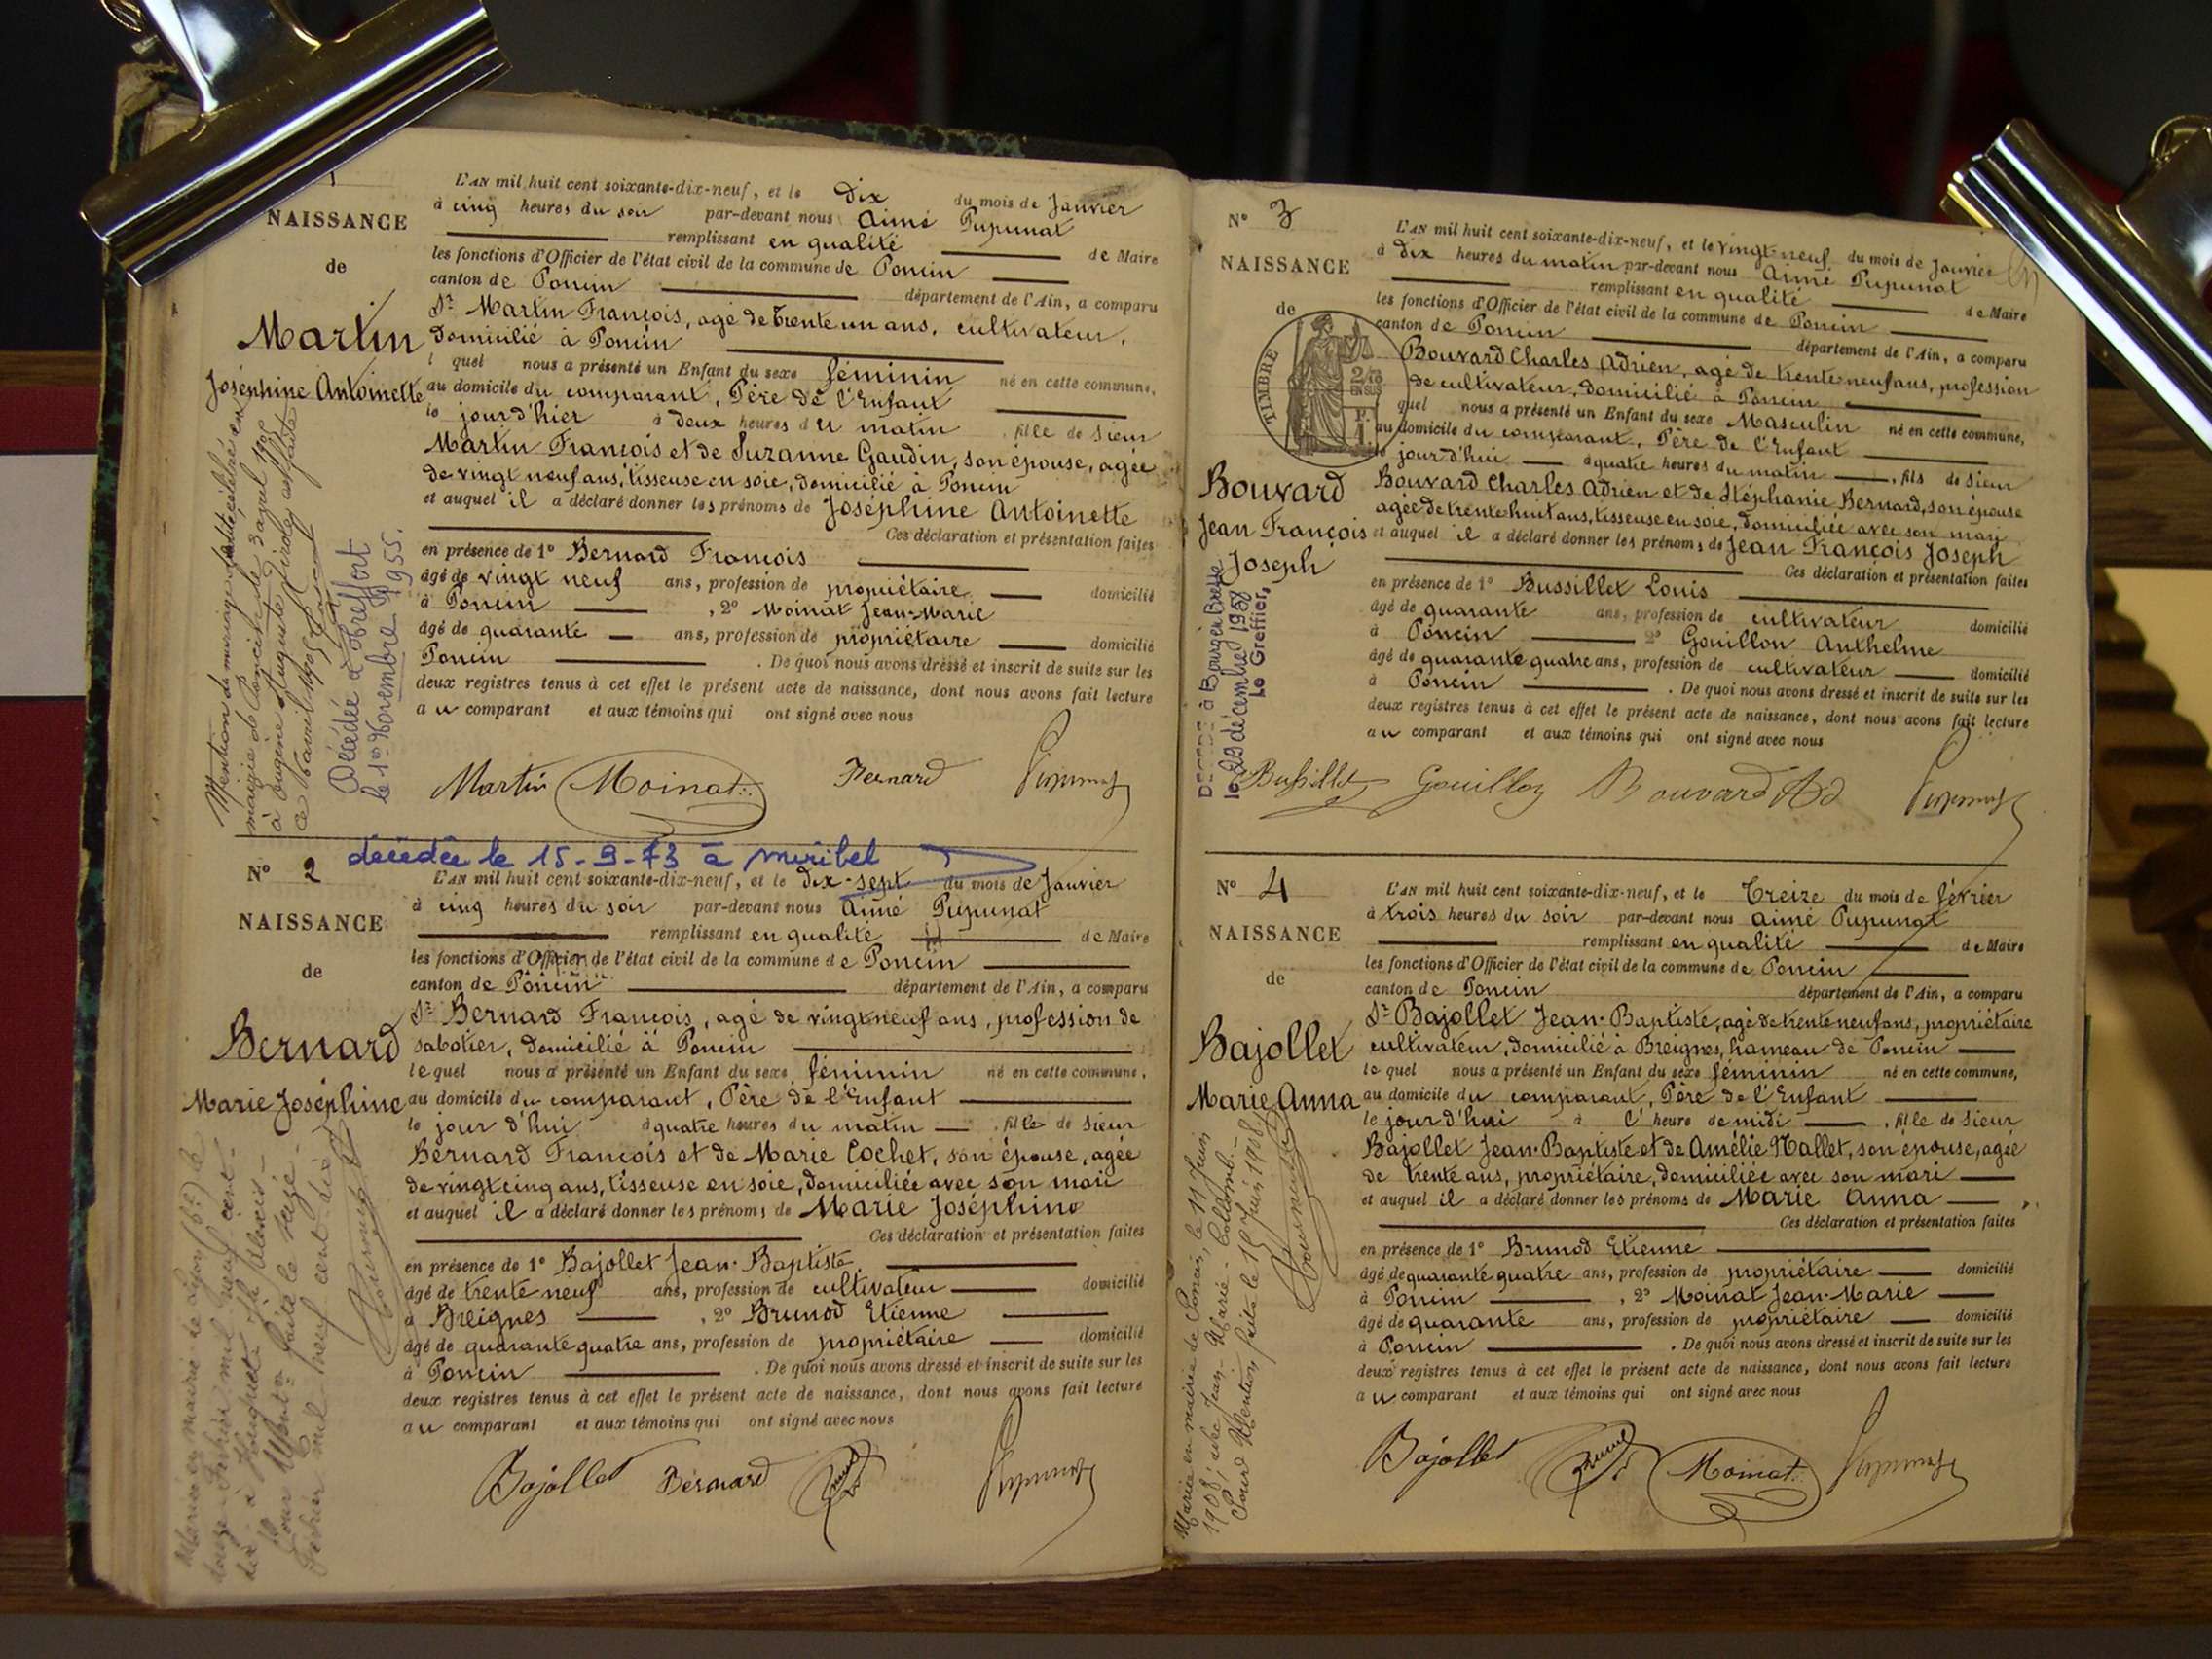 1
NAISSANCE
de
Martin
Joséphine Antoinette
L'AN mil huit cent soixante-dix-neuf, et le dix du mois de Janvier
à cinq heures du soir par-devant nous Aimé Pupunat
remplissant en qualité de Maire
les fonctions d'Officier de l'état civil de la commune de Poncin
canton de Poncin département de l'Ain, a comparu
Sr Martin François, agé de trente un ans, cultivateur,
domicilié à Poncin
l quel nous a présenté un Enfant du sexe féminin né en cette commune,
au domicile du comparant, Père de l'Enfant
le jour d'hier à deux heures du matin , fille de Sieur
Martin François et de Suzanne Gaudin, son épouse, agée
de vingt neuf ans, tisseuse en soie, domicilié à Poncin
et auquel il a déclaré donner les prénoms de Joséphine Antoinette
Ces déclaration et présentation faites
en présence de 1° Bernard François
âgé de vingt neuf ans, profession de propriétaire domicilié
à Poncin , 2° Moinat Jean-Marie
âgé de quarante ans, profession de propriétaire domicilié
Poncin . De quoi nous avons dressé et inscrit de suite sur les
deux registres tenus à cet effet le présent acte de naissance, dont nous avons fait lecture
au comparant et aux témoins qui ont signé avec nous
Décédée à Treffort
le 1er Novembre 1955.
Martin Moinat Bernard Pupunat
décédée le 15-9-73 à miribel
N° 2
NAISSANCE
de
Bernard
Marie Joséphine
L'AN mil huit cent soixante-dix-neuf, et le dix-sept du mois de Janvier
à cinq heures du soir par-devant nous Aimé Pupunat
remplissant en qualité de Maire
les fonctions d'Officier de l'état civil de la commune de Poncin
canton de Poncin département de l'Ain, a comparu
Sr Bernard François, agé de vingt neuf ans, profession de
sabotier, domicilié à Poncin
lequel nous a présenté un Enfant du sexe féminin né en cette commune,
au domicile du comparant, Père de l'Enfant
le jour d'hui à quatre heures du matin , fille de Sieur
Bernard François et de Marie Cochet, son épouse, agée
de vingt cinq ans, tisseuse en soie, domiciliée avec son mari
et auquel il a déclaré donner les prénoms de Marie Joséphine
Ces déclaration et présentation faites
en présence de 1° Bajollet Jean-Baptiste
âgé de trente neuf ans, profession de cultivateur domicilié
à Breignes , 2° Brunod Etienne
âgé de quarante quatre ans, profession de propriétaire domicilié
à Poncin . De quoi nous avons dressé et inscrit de suite sur les
deux registres tenus à cet effet le présent acte de naissance, dont nous avons fait lecture
au comparant et aux témoins qui ont signé avec nous
Bajollet Bernard Pupunat
N° 3
NAISSANCE
de
TIMBRE
Bouvard
Jean François
Joseph
L'AN mil huit cent soixante-dix-neuf, et le vingt-neuf du mois de Janvier
à dix heures du matin par-devant nous Aimé Pupunat
remplissant en qualité de Maire
les fonctions d'Officier de l'état civil de la commune de Poncin
canton de Poncin département de l'Ain, a comparu
Bouvard Charles Adrien, agé de trente neuf ans, profession
de cultivateur, domicilié à Poncin
quel nous a présenté un Enfant du sexe Masculin né en cette commune,
au domicile du comparant, Père de l'Enfant
jour d'hui à quatre heures du matin , fils de Sieur
Bouvard Charles Adrien et de Stéphanie Bernard, son épouse
agée de trente huit ans, tisseuse en soie, domiciliée avec son mari
et auquel il a déclaré donner les prénoms de Jean François Joseph
Ces déclaration et présentation faites
en présence de 1° Bussillet Louis
âgé de quarante ans, profession de cultivateur domicilié
à Poncin 2° Gouillon Anthelme
âgé de quarante quatre ans, profession de cultivateur domicilié
à Poncin . De quoi nous avons dressé et inscrit de suite sur les
deux registres tenus à cet effet le présent acte de naissance, dont nous avons fait lecture
au comparant et aux témoins qui ont signé avec nous
à Bourg en Bresse
décembre 1958
Le Greffier,
Bussillet Gouillon Bouvard Ad Pupunat
N° 4
NAISSANCE
de
Bajollet
Marie Anna
L'AN mil huit cent soixante-dix-neuf, et le Treize du mois de février
à trois heures du soir par-devant nous Aimé Pupunat
remplissant en qualité de Maire
les fonctions d'Officier de l'état civil de la commune de Poncin
canton de Poncin département de l'Ain, a comparu
Sr Bajollet Jean-Baptiste, agé de trente neuf ans, propriétaire
cultivateur, domicilié à Breignes, hameau de Poncin
le quel nous a présenté un Enfant du sexe féminin né en cette commune,
au domicile du comparant, Père de l'Enfant
le jour d'hui à l' heure de midi , fille de Sieur
Bajollet Jean-Baptiste et de Amélie Mallet, son épouse, agée
de trente ans, propriétaire, domiciliée avec son mari
et auquel il a déclaré donner les prénoms de Marie Anna
Ces déclaration et présentation faites
en présence de 1° Brunod Etienne
âgé de quarante quatre ans, profession de propriétaire domicilié
à Poncin , 2° Moinat Jean-Marie
âgé de quarante ans, profession de propriétaire domicilié
à Poncin . De quoi nous avons dressé et inscrit de suite sur les
deux registres tenus à cet effet le présent acte de naissance, dont nous avons fait lecture
au comparant et aux témoins qui ont signé avec nous
Mariée en mairie de Poncin, le 11 Juin
1908, avec Jean-Marie Collomb.
Mention faite le 15 Juin 1908
Bajollet Moinat Pupunat